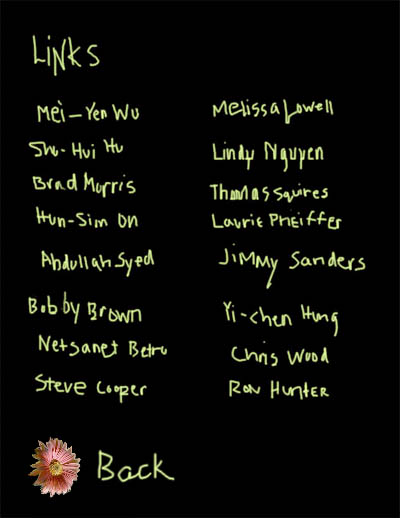 Links
Mei-Yen Wu
Shu-Hui Hu
Brad Morris
Hun-Sim On
Abdullah Syed
Bobby Brown
Netsanet Betru
Steve Cooper
Melissa Lowell
Lindy Nguyen
Thomas Squires
Laurie Pheiffer
Jimmy Sanders
Yi-chen Hung
Chris Wood
Ron Hunter
Back